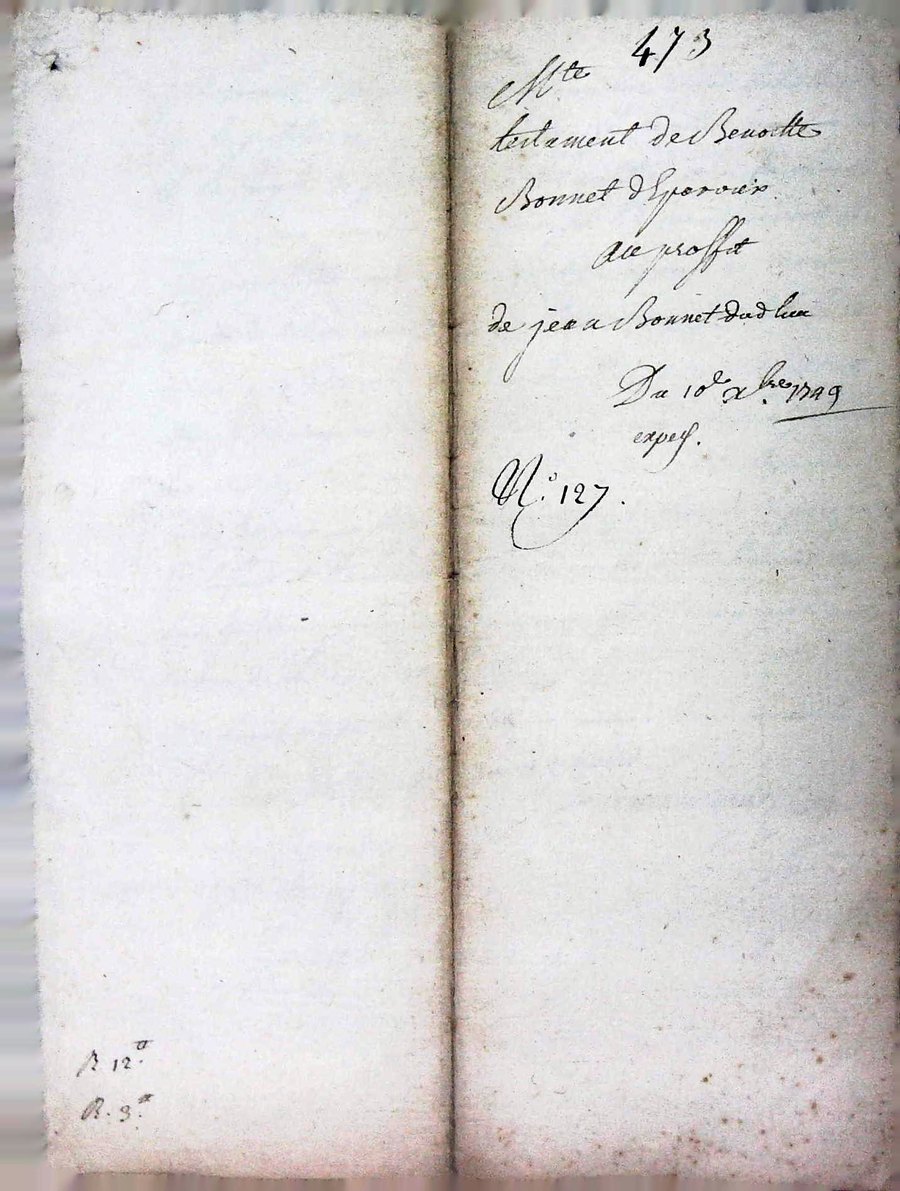 473
Mte
testament de Benoitte
Bonnet d'Eparoux
au proffit
de jean Bonnet dud lieu
Du 10e xbre 1749
exped.
N° 127.
R 12
R. 3